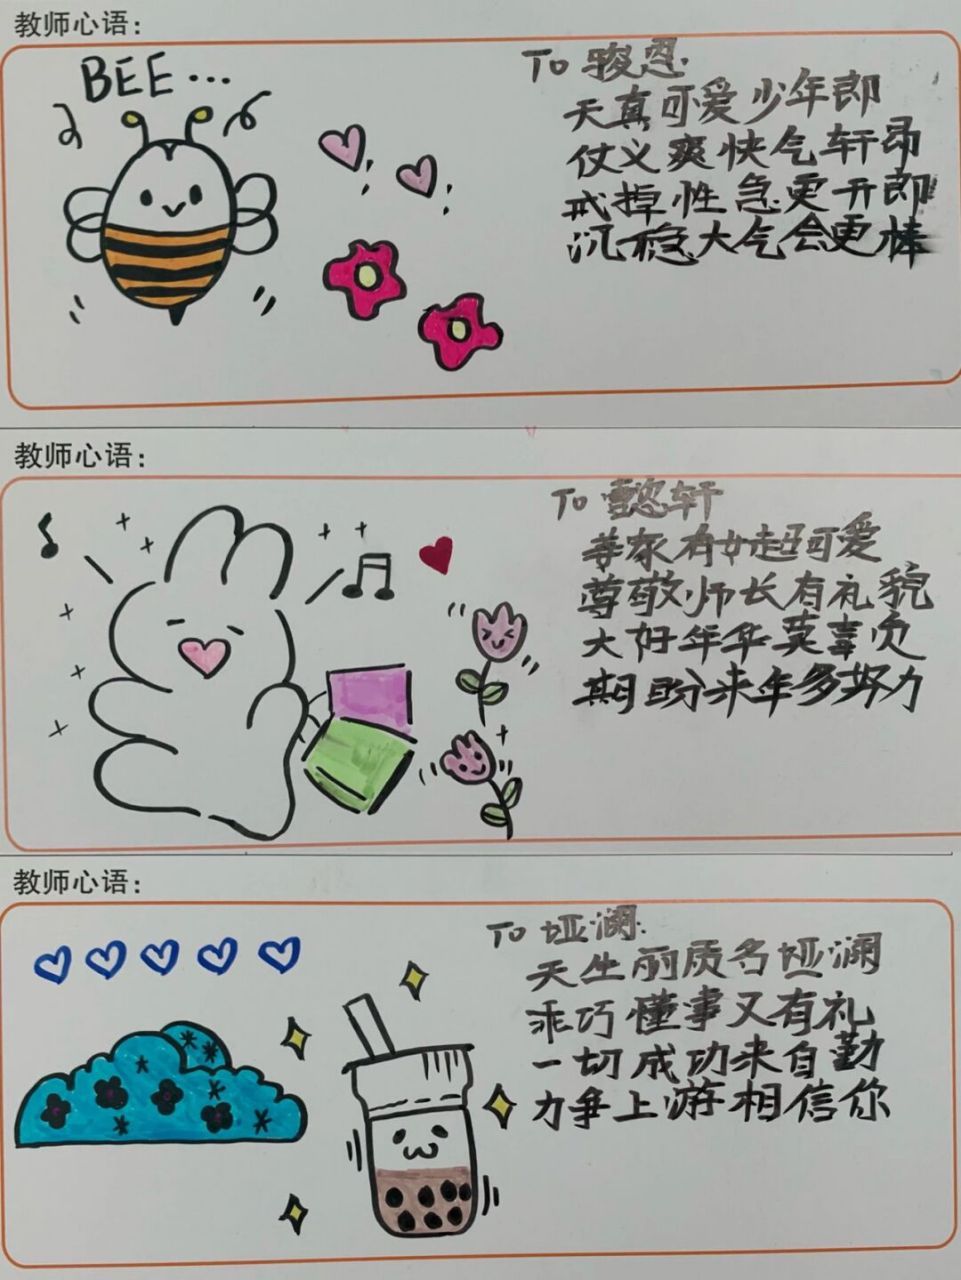 教师心语：
BEE...
To 骏恩:
天真可爱少年郎
仗义爽快气轩昂
戒掉性急更开朗
沉稳大气会更棒
教师心语：
To 懿轩
荨家有女超可爱
尊敬师长有礼貌
大好年华莫辜负
期盼来年多努力
教师心语：
To 娅澜:
天生丽质名娅澜
乖巧懂事又有礼
一切成功来自勤
力争上游相信你